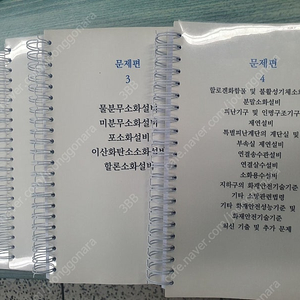 문제편
3
물분무소화설비
미분무소화설비
포소화설비
이산화탄소소화설비
할론소화설비
문제편
4
할로겐화합물 및 불활성기체소화
분말소화설비
피난기구 및 인명구조기구
제연설비
특별피난계단의 계단실 및
부속실 제연설비
연결송수관설비
연결살수설비
소화용수설비
지하구의 화재안전기술기준
기타 소방관련법령
기타 화재안전성능기준 및
화재안전기술기준
최신 기출 및 추가 문제